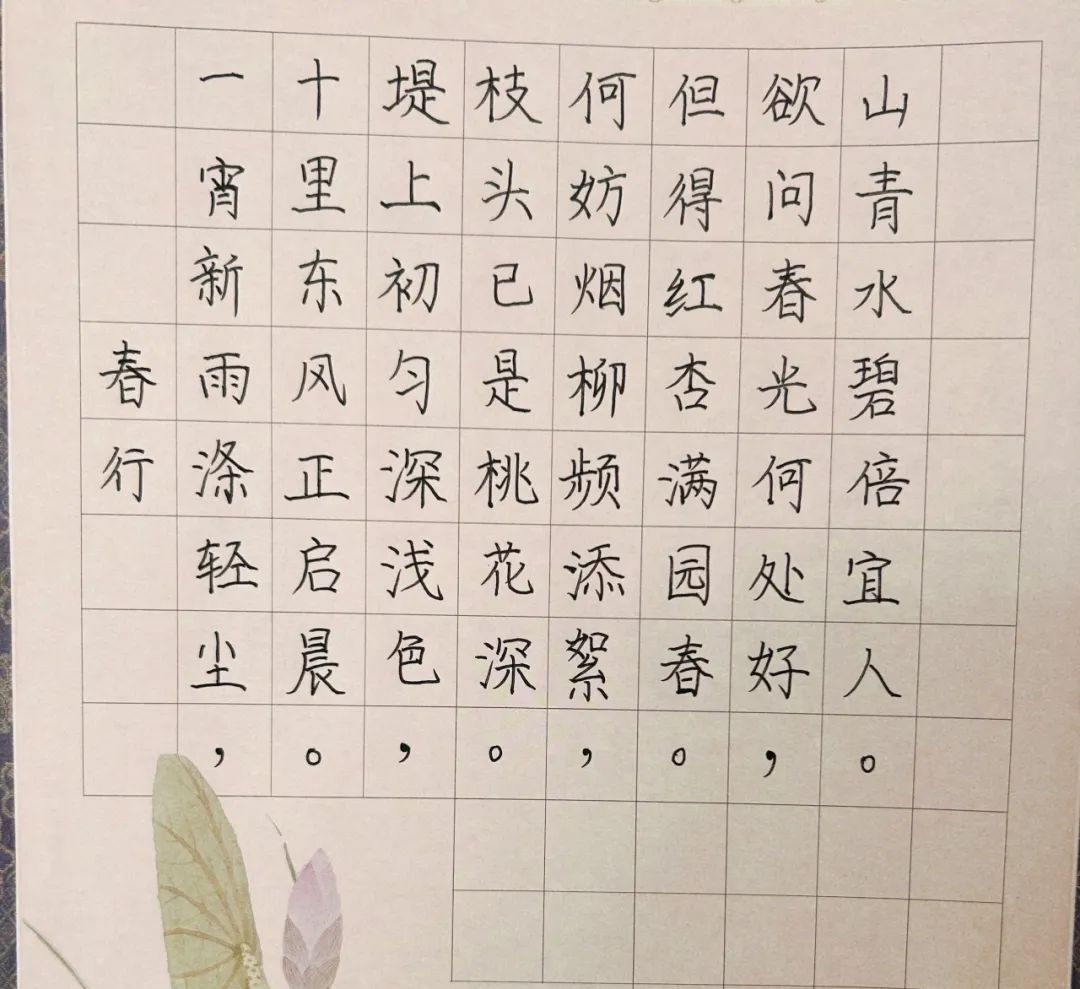 春行
一宵新雨涤轻尘，
十里东风正启晨。
堤上初匀深浅色，
枝头已是桃花深。
何妨烟柳频添絮，
但得红杏满园春。
欲问春光何处好，
山青水碧倍宜人。